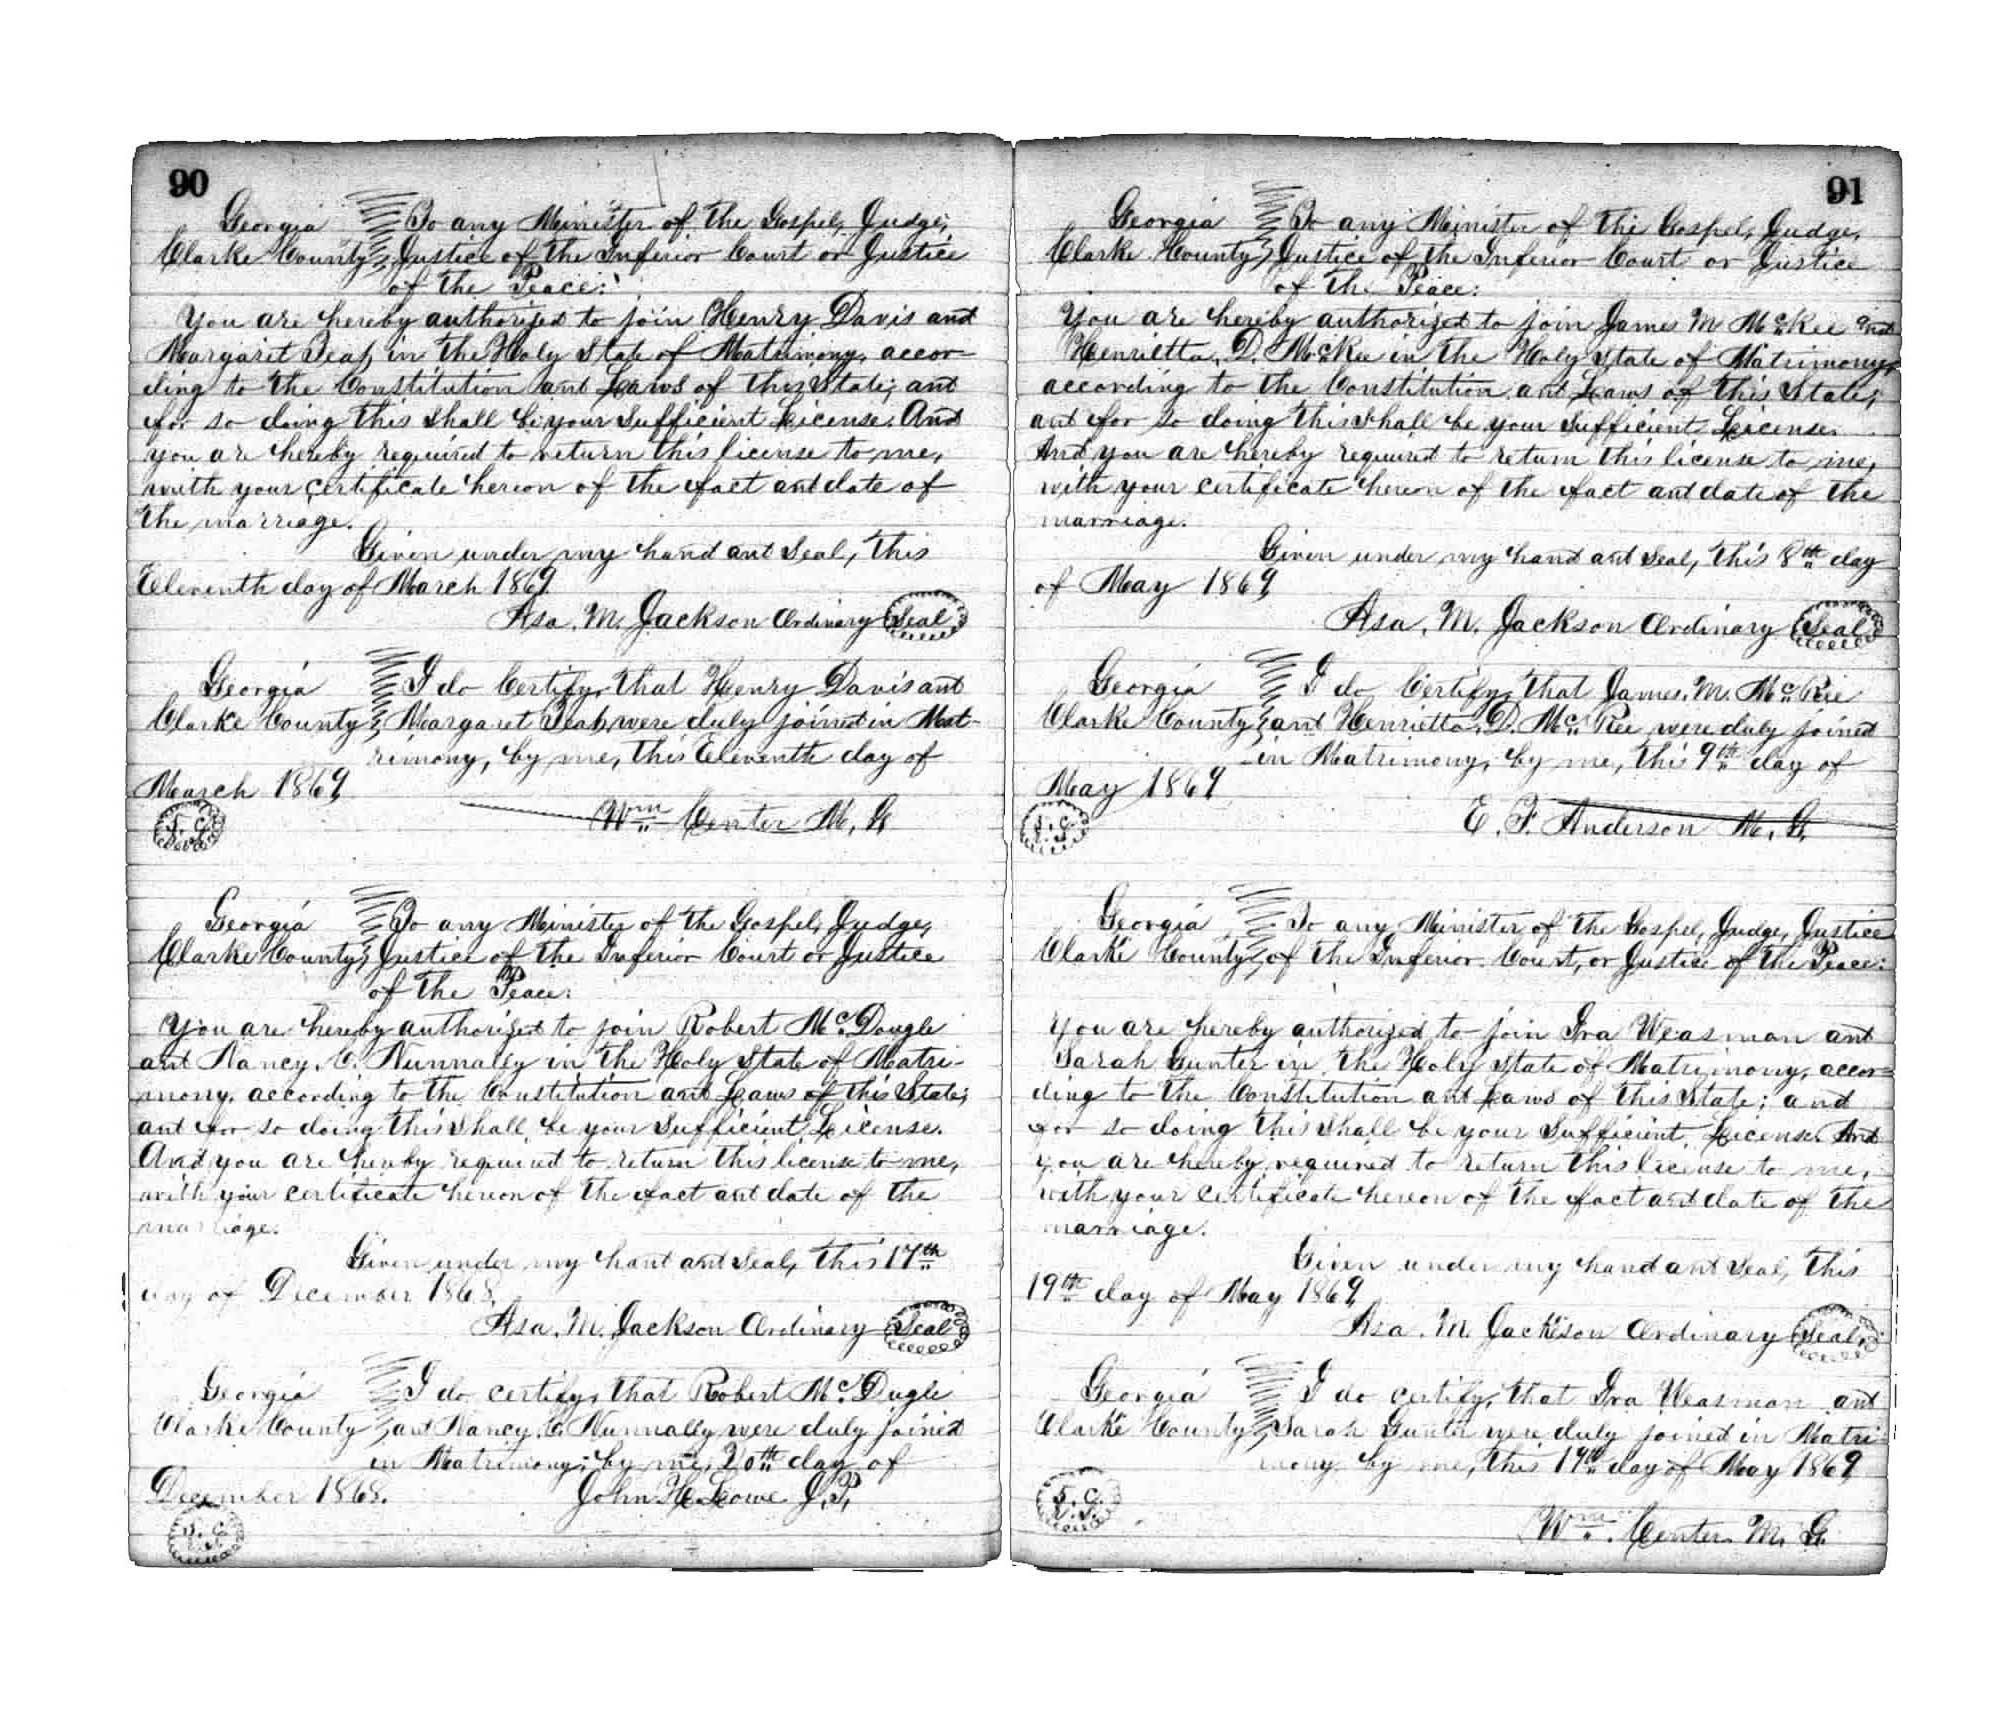 90
Georgia To any Minister of the Gospel, Judge,
Clarke County, Justice of the Inferior Court or Justice
of the Peace:
You are hereby authorized to join Henry Davis and
Margaret in the Holy State of Matrimony, accor-
ding to the Constitution and Laws of this State; and
for so doing this shall be your sufficient License. And
you are hereby required to return this license to me,
with your certificate hereon of the fact and date of
the marriage.
Given under my hand and seal, this
Eleventh day of March 1869
Asa. M. Jackson Ordinary Seal
Georgia I do Certify, that Henry Davis and
Clarke County, Margaret were duly joined in Mat-
rimony, by me, this Eleventh day of
March 1869
Wm Center M. G.
Georgia To any Minister of the Gospel, Judge,
Clarke County, Justice of the Inferior Court or Justice
of the Peace:
You are hereby authorized to join Robert Mc. Dougle
and Nancy. C. Nunnally in the Holy State of Matri-
mony, according to the Constitution and Laws of this State;
and for so doing this shall be your sufficient License.
And you are hereby required to return this license to me,
with your certificate hereon of the fact and date of the
marriage.
Given under my hand and seal, this 17th
day of December 1868,
Asa. M. Jackson Ordinary Seal
Georgia I do certify, that Robert Mc. Dugle
Clarke County and Nancy. C. Nunnally were duly joined
in Matrimony; by me, 20th day of
December 1868. John H. Lowe J.P.
91
Georgia To any Minister of the Gospel, Judge,
Clarke County, Justice of the Inferior Court or Justice
of the Peace:
You are hereby authorized to join James M McRee and
Henrietta. D. McRee in the Holy State of Matrimony,
according to the Constitution and Laws of this State;
and for so doing this shall be your sufficient License.
And you are hereby required to return this license to me,
with your certificate hereon of the fact and date of the
marriage.
Given under my hand and seal, this 8th day
of May 1869
Asa. M. Jackson Ordinary Seal
Georgia I do Certify, that James. M. Mc. Ree
Clarke County, and Henrietta. D. Mc. Ree were duly joined
in Matrimony, by me, this 9th day of
May 1869
E. F. Anderson M. G.
Georgia To any Minister of the Gospel, Judge, Justice
Clarke County, of the Inferior Court, or Justice of the Peace:
You are hereby authorized to join Ira Weasman and
Sarah Gunter in the Holy State of Matrimony, accor-
ding to the Constitution and Laws of this State; and
for so doing this shall be your sufficient License. And
you are hereby required to return this license to me,
with your certificate hereon of the fact and date of the
marriage.
Given under my hand and seal, this
19th day of May 1869
Asa. M. Jackson Ordinary Seal
Georgia I do certify, that Ira Weasman and
Clarke County, Sarah Gunter were duly joined in Matri-
mony by me, this 19th day of May 1869
Wm. Center M. G.